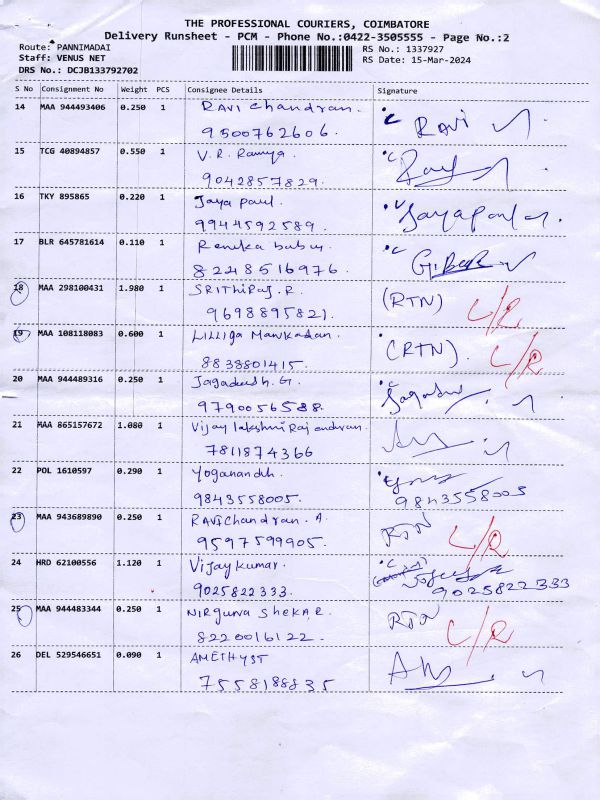 THE PROFESSIONAL COURIERS, COIMBATORE
Delivery Runsheet - PCM - Phone No.:0422-3505555 - Page No.:2
Route: PANNIMADAI
Staff: VENUS NET
DRS No.: DCJB133792702
RS No.: 1337927
RS Date: 15-Mar-2024
S No Consignment No Weight PCS Consignee Details Signature
14 MAA 944493406 0.250 1 Ravi chandran. Ravi
9500762606.
15 TCG 40894857 0.550 1 V.R. Ramya.
9042857829.
16 TKY 895865 0.220 1 Jaya paul. Jayapaul
9944592589.
17 BLR 645781614 0.110 1 Renuka babu
8248516976.
18 MAA 298100431 1.980 1 SRithiRaj.R. (RTN) L/R
9698895821.
19 MAA 108118083 0.600 1 Lilliga Manikadan. (RTN). L/R
8833801415.
20 MAA 944489316 0.250 1 Jagadeesh.G.
9790056588.
21 MAA 865157672 1.080 1 Vijay lakshmi Rajendran.
7811874366
22 POL 1610597 0.290 1 Yoganandh.
9843558005. 9843558005
23 MAA 943689890 0.250 1 RAVIChandran.A. RTN L/R
9597599905.
24 HRD 62100556 1.120 1 Vijay kumar.
9025822333. 9025822333
25 MAA 944483344 0.250 1 Nirguna SHEKAR. RTN L/R
8220016122.
26 DEL 529546651 0.090 1 AMETHYST
7558188835